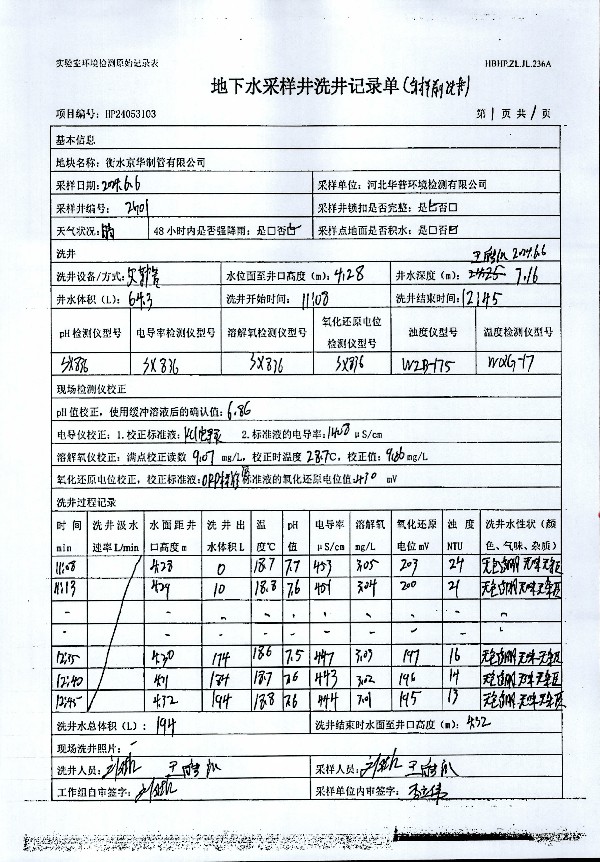 实验室环境检测原始记录表 HBHP.ZL.JL.236A
地下水采样井洗井记录单(采样前洗井)
项目编号: HP24053103 第1页 共1页
基本信息
地块名称: 衡水京华制管有限公司
采样日期: 2024.6.6 采样单位: 河北华普环境检测有限公司
采样井编号: 2401 采样井锁扣是否完整: 是☑否□
天气状况: 晴 48小时内是否强降雨: 是□否☑ 采样点地面是否积水: 是□否☑
洗井 2024.6.6
洗井设备/方式: 水位面至井口高度(m): 4.28 井水深度(m): 7.16
井水体积(L): 64.3 洗井开始时间: 11:08 洗井结束时间: 12:45
pH检测仪型号 电导率检测仪型号 溶解氧检测仪型号 氧化还原电位检测仪型号 浊度仪型号 温度检测仪型号
SX836 SX836 SX836 SX836 WZB-175
现场检测仪校正
pH值校正,使用缓冲溶液后的确认值: 6.86
电导仪校正: 1.校正标准液: KCl 2.标准液的电导率: 1408 μS/cm
溶解氧仪校正: 满点校正读数 9.07 mg/L, 校正时温度 28.7℃, 校正值: mg/L
氧化还原电位校正, 校正标准液: ORP标准液 标准液的氧化还原电位值: 430 mV
洗井过程记录
时间min 洗井汲水速率L/min 水面距井口高度m 洗井出水体积L 温度℃ pH值 电导率μS/cm 溶解氧mg/L 氧化还原电位mV 浊度NTU 洗井水性状(颜色、气味、杂质)
11:08 4.28 0 18.7 7.7 453 3.05 203 24 无色透明无味无杂质
11:13 4.29 10 18.8 7.6 451 3.04 200 21 无色透明无味无杂质
- - - - - - - - -
- - - - - - - - -
12:35 4.30 174 18.6 7.5 447 3.03 197 16 无色透明无味无杂质
12:40 4.31 184 18.7 7.6 443 3.02 196 14 无色透明无味无杂质
12:45 4.32 194 18.8 7.6 444 3.01 195 13 无色透明无味无杂质
洗井水总体积(L): 194 洗井结束时水面至井口高度(m): 4.32
现场洗井照片: -
洗井人员: 采样人员:
工作组自审签字: 采样单位内审签字: